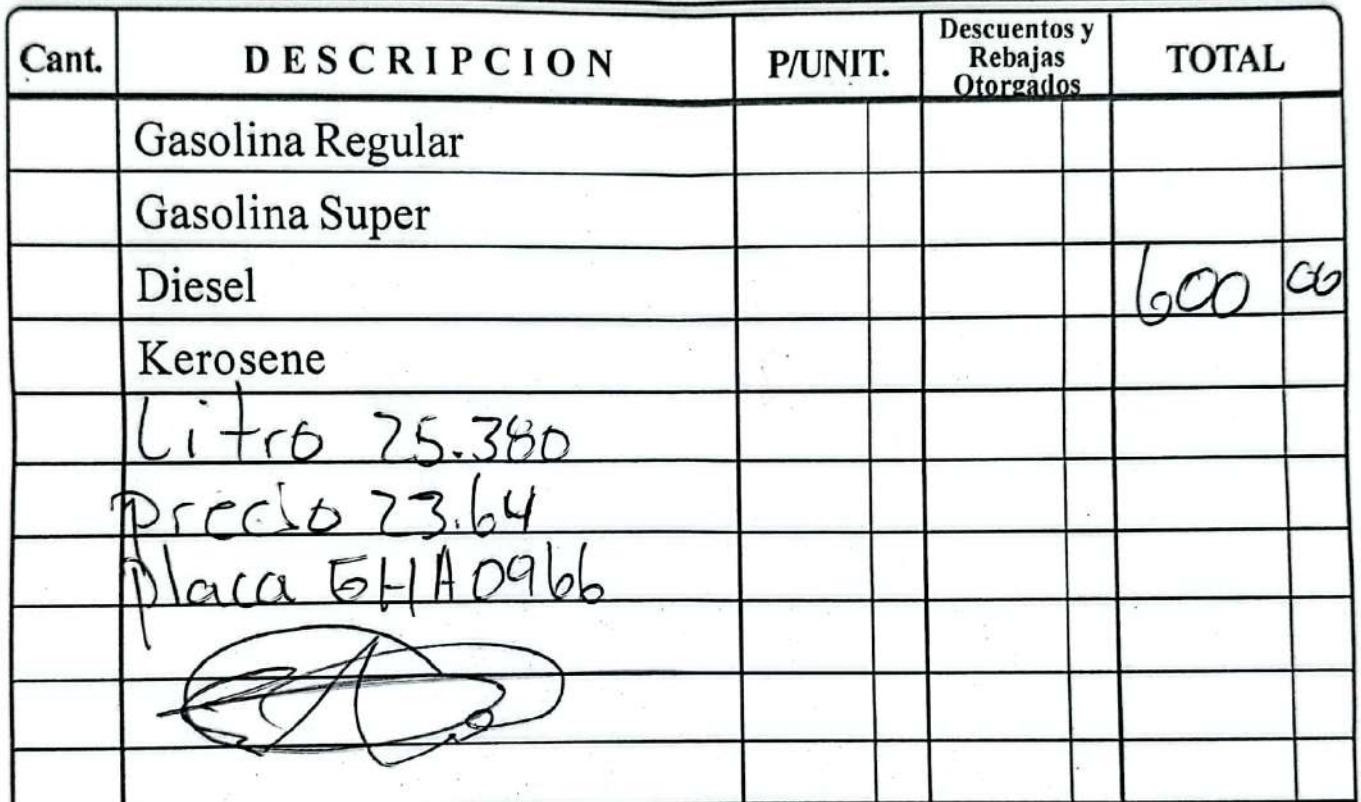 Cant. DESCRIPCION P/UNIT. Descuentos y Rebajas Otorgados TOTAL
Gasolina Regular
Gasolina Super
Diesel 600 00
Kerosene
Litro 25.380
precio 23.64
placa GHA0966